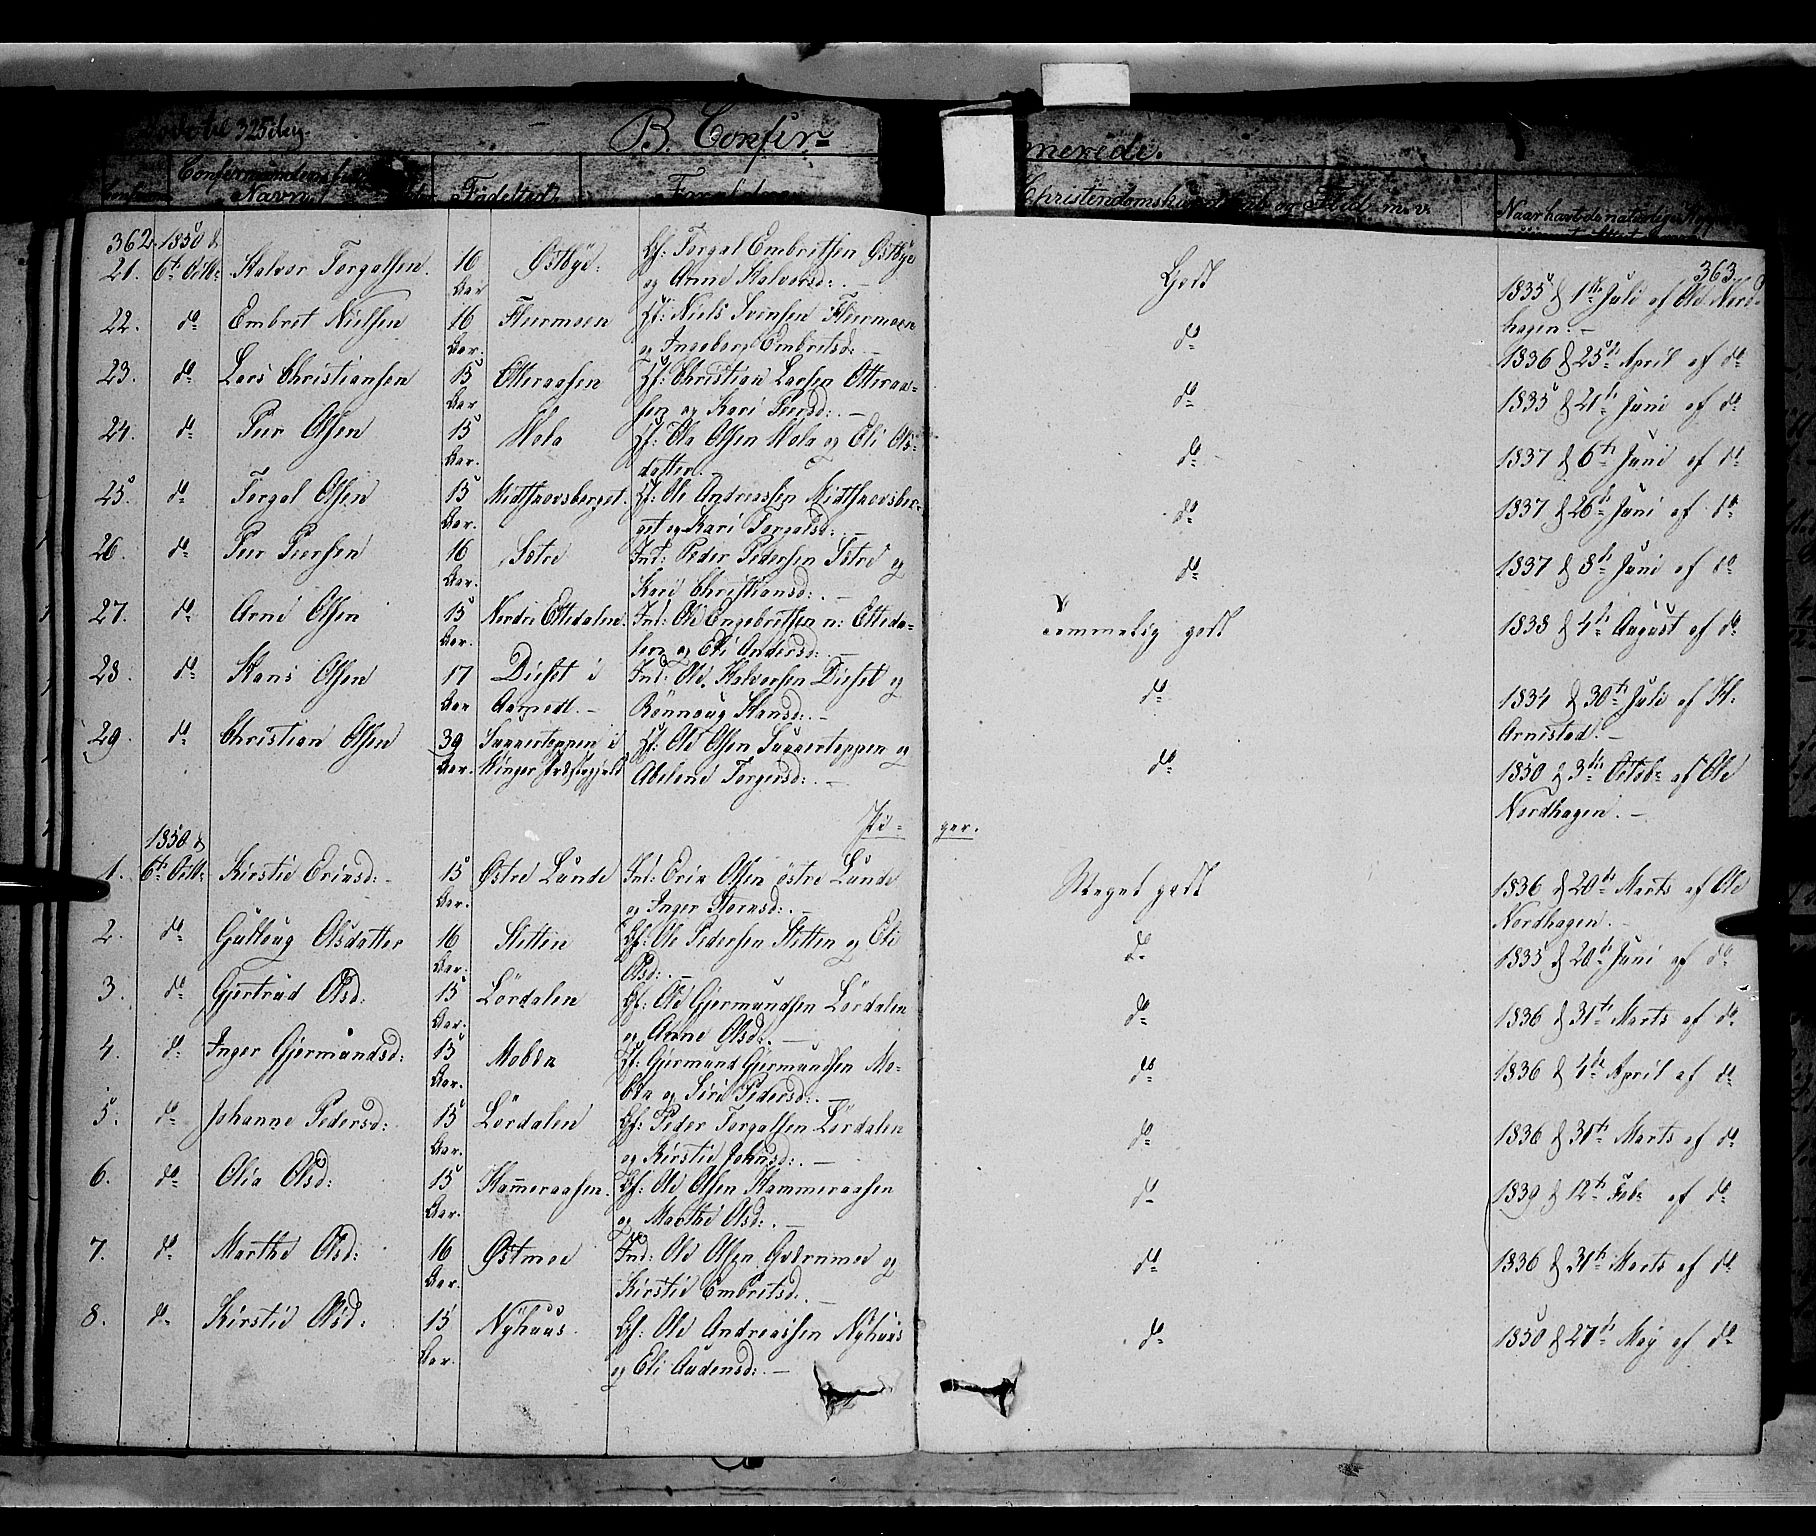 B. Confir= merede.
Navn Fødested
Christendomskundskab og Flid m. v.
362. 1850 d. 363.
21. 6te Octbr Halvor Torgalsen. 16 Aar Østbye. Gf: Torgal Embretsen Østbye og Arne Halvorsd: – Godt 1835 d 1ste Juli af Ole Nordhagen. –
22. do Embret Nielsen 16 Aar. Flermoen Gf: Niels Svensen Flermoen og Ingeborg Embretsd: – do 1836 d 25de April af do
23. do Lars Christiansen 15 Aar Otteraasen Gf: Christian Larsen Otteraasen og Kari Peersd: – do 1835 d 21de Juni af do
24. do Peer Olsen 15 Aar. Hola Gf: Ole Olsen Hola og Eli Olsdatter. – do 1837 d 6te Juni af do
25. do Torgal Olsen 15 Aar. Midtskovsberget. Gf: Ole Andreassen Midtskovsberget og Kari Torgalsd: – do 1837 d 26de Juni af do
26. do Peer Peersen 16 Aar. Sætre Ind: Peder Pedersen Sætre og Kari Christiansd: – do 1837 d 8de Juni af do
27. do Arne Olsen 15 Aar. Nordre Ettedalen. Ind: Ole Engebretsen n: Ettedalen og Eli Andersd: – temmelig godt 1838 d 4de August af do
28. do Hans Olsen 17 Aar Diset i Aamodt. – Ind: Ole Halvorsen Diset og Rønnoug Hansd: – do 1834 d 30te Juli af H. Arnestad. –
29. do Christian Olsen 39 Aar. Suggertoppen i Winger Præstegjeld Gf: Ole Olsen Suggertoppen og Abelone Torgersd: – do 1850 d 3die Octobr af Ole Nordhagen. –
Pi- ger.
1850 d
1. 6te Octbr Kirstie Ericsd: 15 Aar. Østre Lunde Ind: Eric Olsen østre Lunde og Inger Bjørnsd: – Meget godt 1836 d 20de Marts af Ole Nordhagen. –
2. do Gulloug Olsdatter 16 Aar. Sletten Gf: Ole Pedersen Sletten og Eli Olsd: – do 1835 d 20de Juni af do
3. do Gjertrud Olsd: 15 Aar. Lørdalen Gf: Ole Gjermundsen Lørdalen og Anne Olsd: – do 1836 d 31te Marts af do
4. do Inger Gjermundsd: 15 Aar. Mobæk Gf: Gjermund Gjermundsen Mobæk og Siri Pedersd: – do 1836 d 4de April af do
5. do Johanne Pedersd: 15 Aar. Lørdalen Gf: Peder Torgalsen Lørdalen og Kirstie Johnsd: – do 1836 d 31te Marts af do
6. do Olia Olsd: 15 Aar. Hammeraasen. Gf: Ole Olsen Hammeraasen og Marthe Olsd: – do 1839 d 12te Febr af do
7. do Marthe Olsd: 16 Aar. Østmoe Ind: Ole Olsen og Kirstie Embretsd. – do 1836 d 31te Marts af do
8. do Kirstie Olsd: 15 Aar. Nyhuus. Gf: Ole Andreassen Nyhuus og Eli Audensd: – do 1850 d 27de May af do